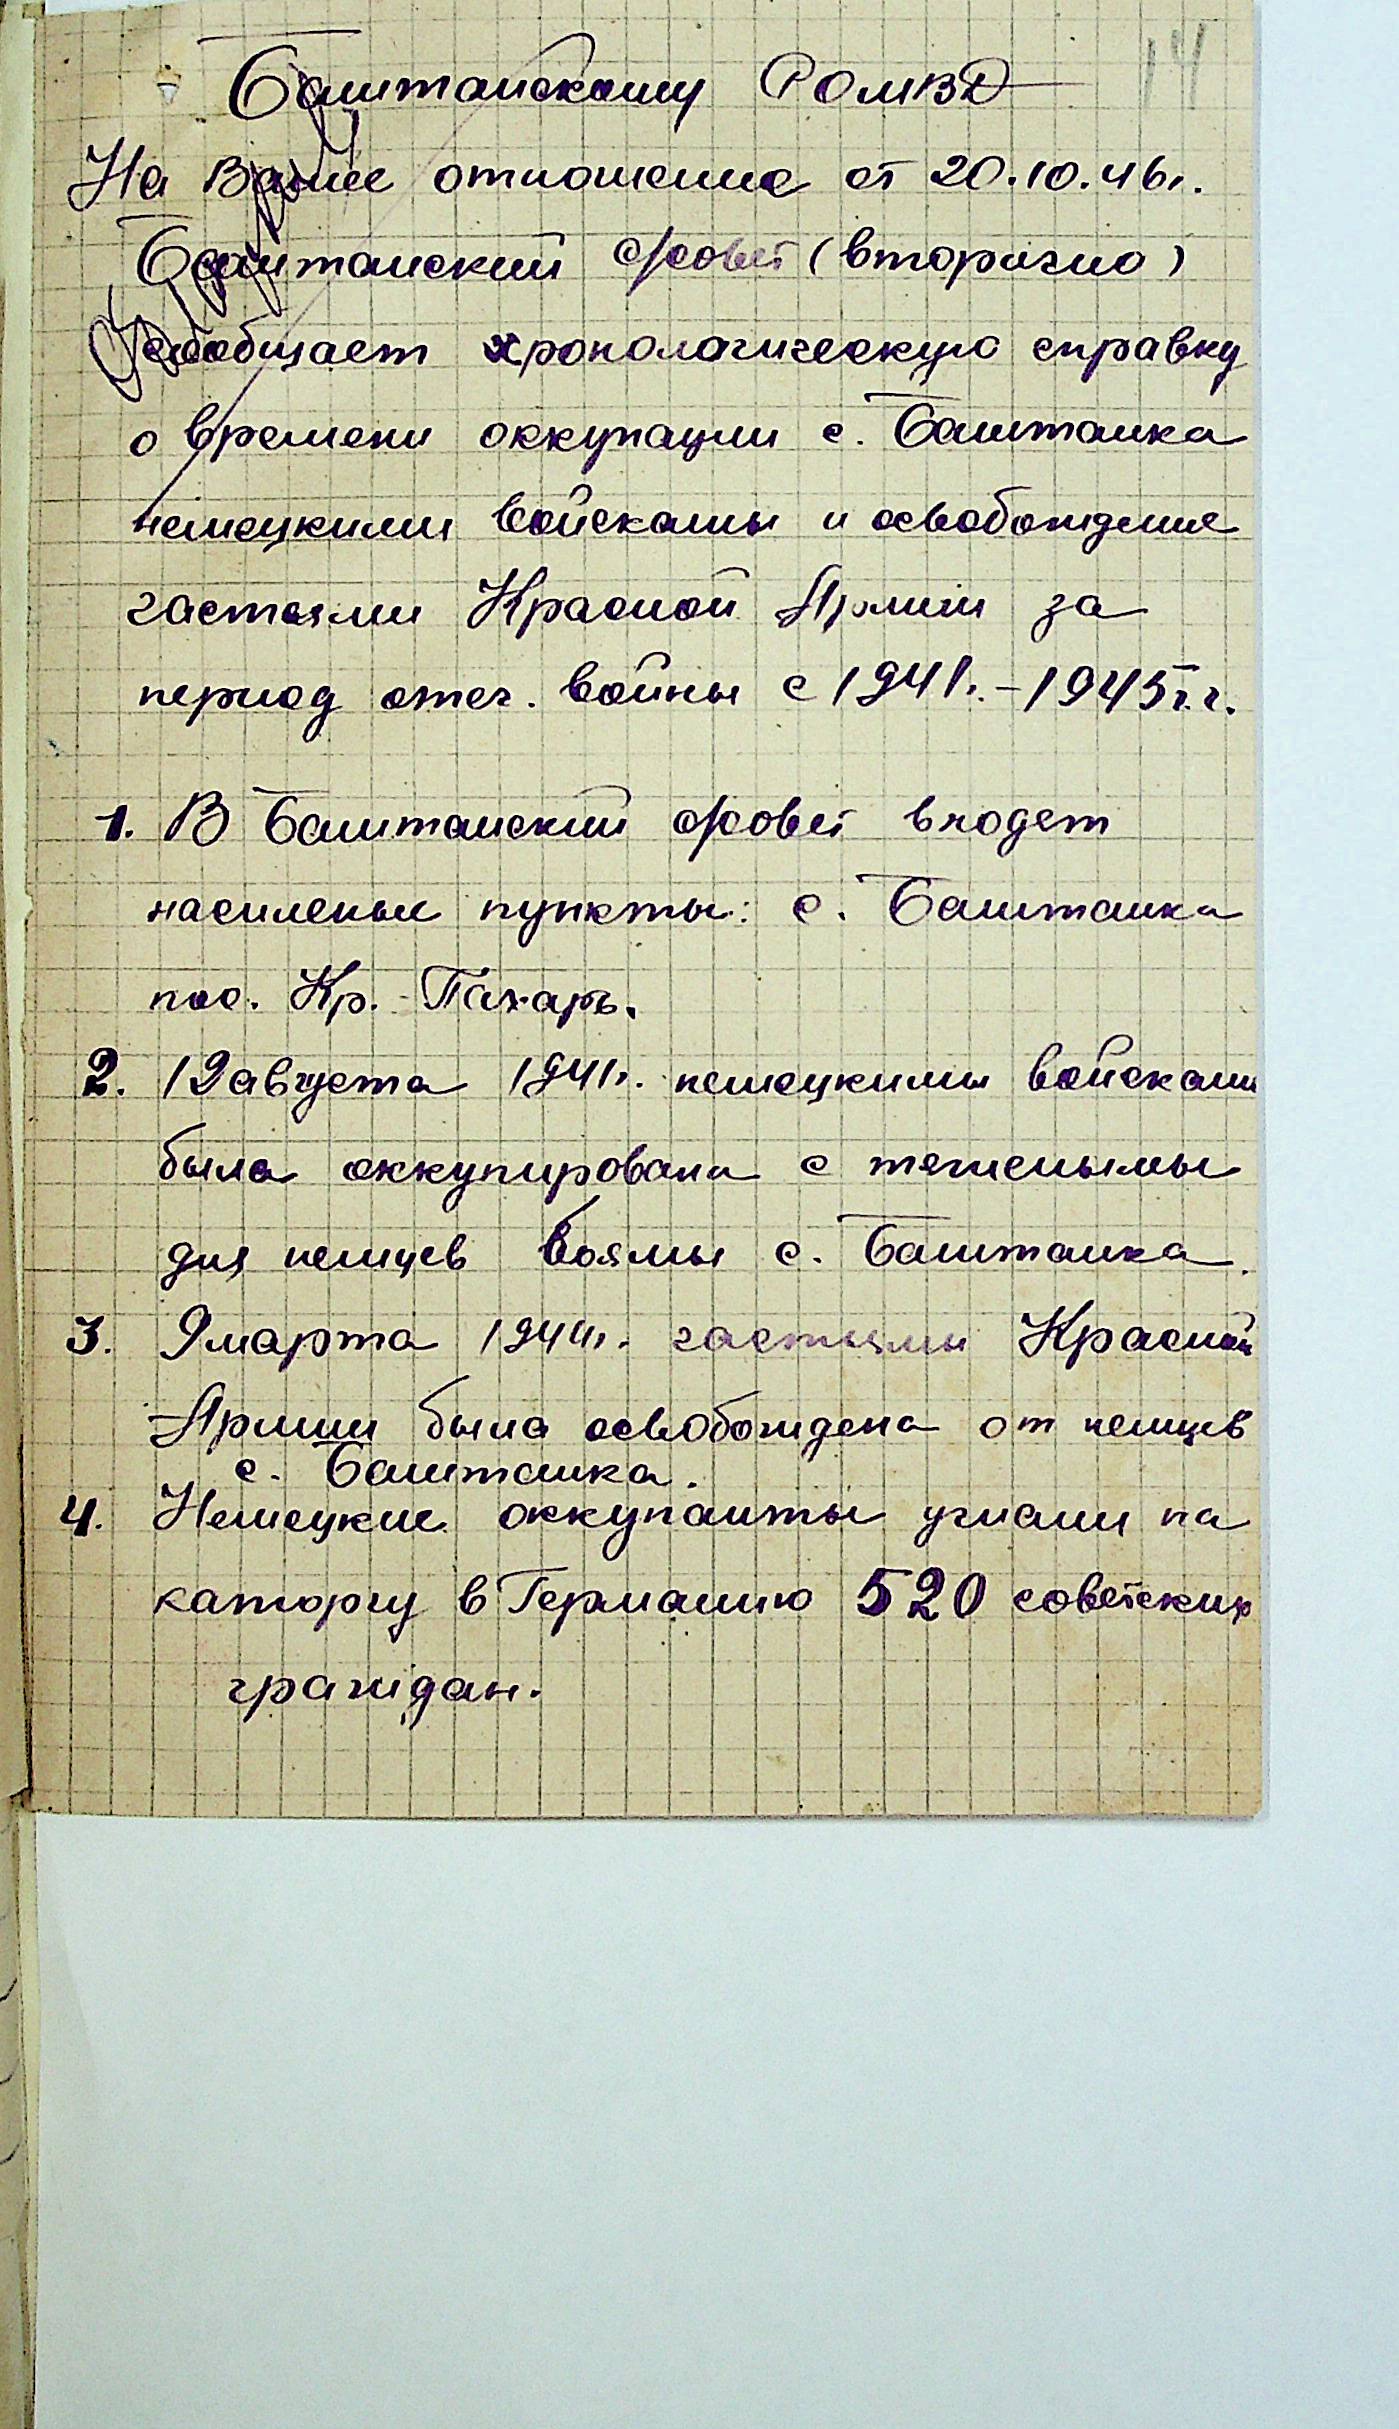 14
Баштанскому РОМВД
На Ваше отношение от 20.10.46г.
Баштанский с/совет (вторично)
сообщает хронологическую справку
о времени оккупации с. Баштанка
немецкими войскамы и освобождения
частями Красной Армии за
период отеч. войны с 1941г. – 1945г.г.
1. В Баштанский с/совет входет
насиленые пункты: с. Баштанка
пос. Кр. - Пахарь.
2. 19 августа 1941г. немецкимы войсками
была оккупирована с тяжелымы
для немцев боямы с. Баштанка.
3. 9 марта 1944г. частьями Красной
Армии была освобождена от немцев
с. Баштанка.
4. Немецкие оккупанты угнали на
каторгу в Германию 520 советских
граждан.